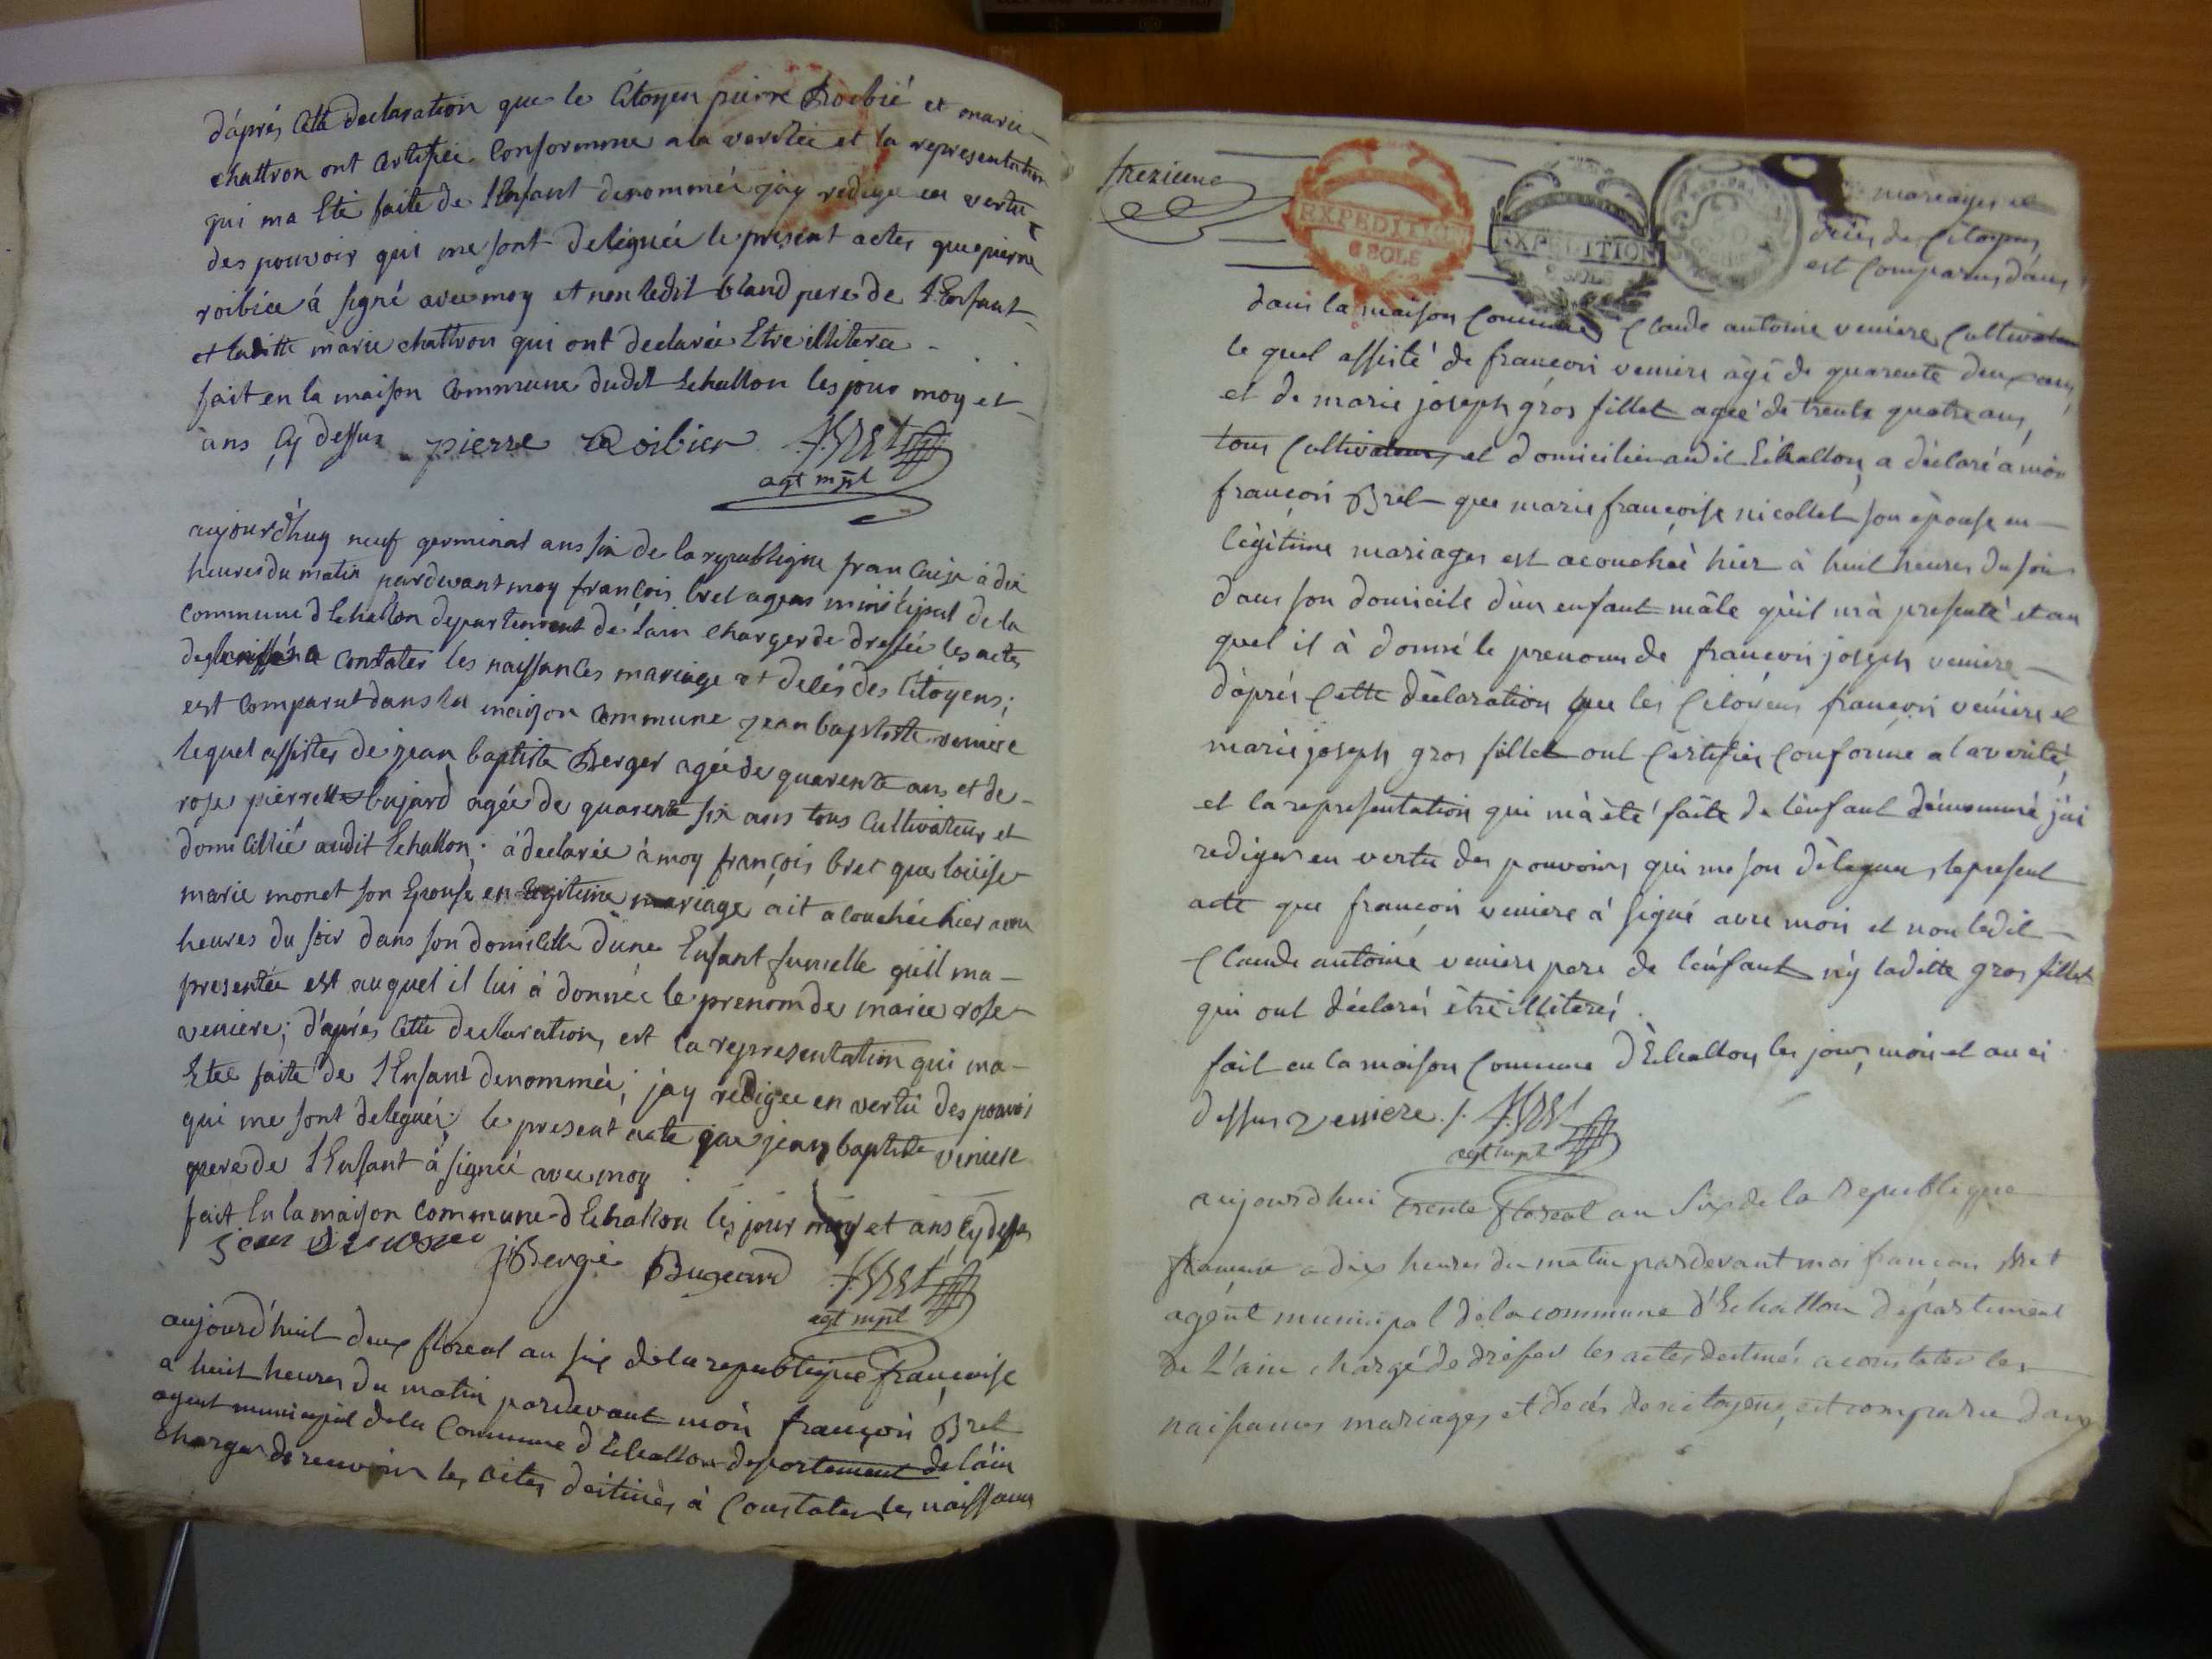 d'aprés cette declaration que le Citoyen pierre Roibié et marie
chattron ont certifiéé Conformme a la veritée et la representation
qui ma Eté faite de l'Enfant denommée jay redigé en vertu
des pouvoir qui me sont deléguée le present actes que pierre
roibiée á signé avec moy et non ledit bland pere de l'Enfant
et laditte marie chattron qui ont declarée Etre illitere
fait en la maison Commune dudit Echallon les jour moy et
ans Cy dessus pierre Roibier f. Bret
agt mpl
aujourd'huy neuf germinal ans six de la republique francaise à dix
heures du matin pardevant moy françois bret agens minicipal de la
Commune d'Echallon departement de lain charger de dressée les actes
destinés a Constater les naissances mariage et decés des Citoyens;
est Comparut dans la maison Commune jean baptiste veniere
lequel assistes de jean baptiste Berger agée de quarente ans et de
rose pierrette bujard agée de quarente six ans tous Cultivateur et
domicillié audit Echallon; á declarée à moy françois bret que louise
marie monet son Epouse en legitime mariage ait acouchée hier
heures du soir dans son domicille d'une Enfant fumelle qu'il ma
presentée est auquel il lui à donnée le prenom de marie rose
veniere; d'aprés cette declaration, est la representation qui ma
Etée faite de l'Enfant denommée; jay redigee en vertu des pouvoi
qui me sont delegués le present acte que jean baptiste veniere
pere de l'Enfant à signée avec moy
fait En la maison Commune d'Echallon les jour moy et ans Cy dessu
jBergé Bugeard f. Bret
agt mpl
aujourd'huit deux floreal an six de la republique françoise
a huit heures du matin pardevant moi françois Bret
agent municipal de la Commune d'Echallon departement de l'ain
charger de recevoir les actes déstinés à Constater les naissances
trezieme
EXPEDITION
6 SOLS
EXPEDITION
mariages et
décès des Citoyens
est Comparus dans
dans la maison Commune Claude antoine veniere Cultivateur
le quel assisté de françois veniere âgé de quarente deux ans
et de marie joseph gros fillet agée de trente quatre ans,
tous Cultivateurs, et domicilié audit Echallon, a déclaré à moi
françois Bret que marie françoise nicollet son épouse en
légitime mariages est acouchéé hier à huit heures du soir
dans son domicile d'un enfant mâle qu'il m'à presenté et au
quel il à donné le prenom de françois joseph veniere
d'après Cette déclaration que les Citoyens françois véniere et
marie joseph gros fillet ont Certifiés Conforme a la verité,
et la representation qui m'à été faite de l'énfant dénommé j'ai
rediger en vertu des pouvoirs qui me son délegues, le present
acte que françois veniere à signé avec moi et non ledit
Claude antoine veniere pere de l'énfant n'y laditte gros fillet
qui ont déclarés être illiterés.
fait en la maison Commune d'Echallon les jours, mois et an ci
dessus veniere ./. f. Bret
agt mpl
aujourdhui trente floreal an Six de la Republique
francaise a dix heures du matin pardevant moi francois Bret
agent municipal de la commune d'Echallon département
de L'ain chargé de dresser les actes destinés a constater les
naissances mariages et décés des citoyens, est comparu dans